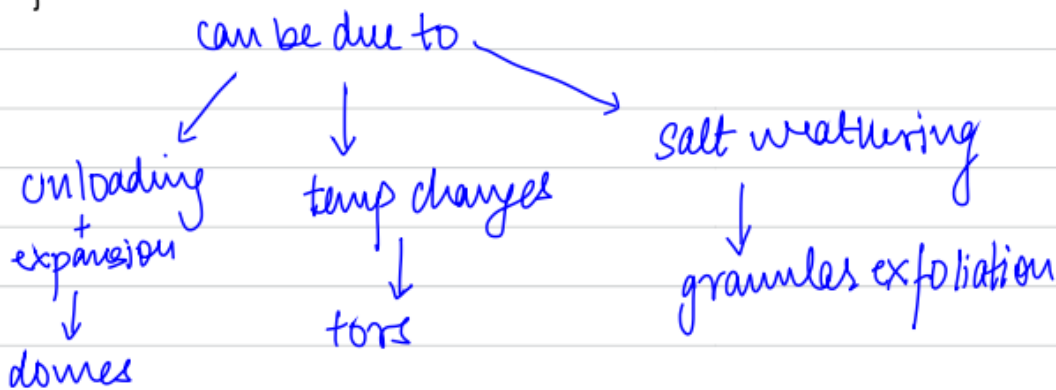 can be due to
unloading
+
expansion
domes
temp changes
tors
salt weathering
granulas exfoliation